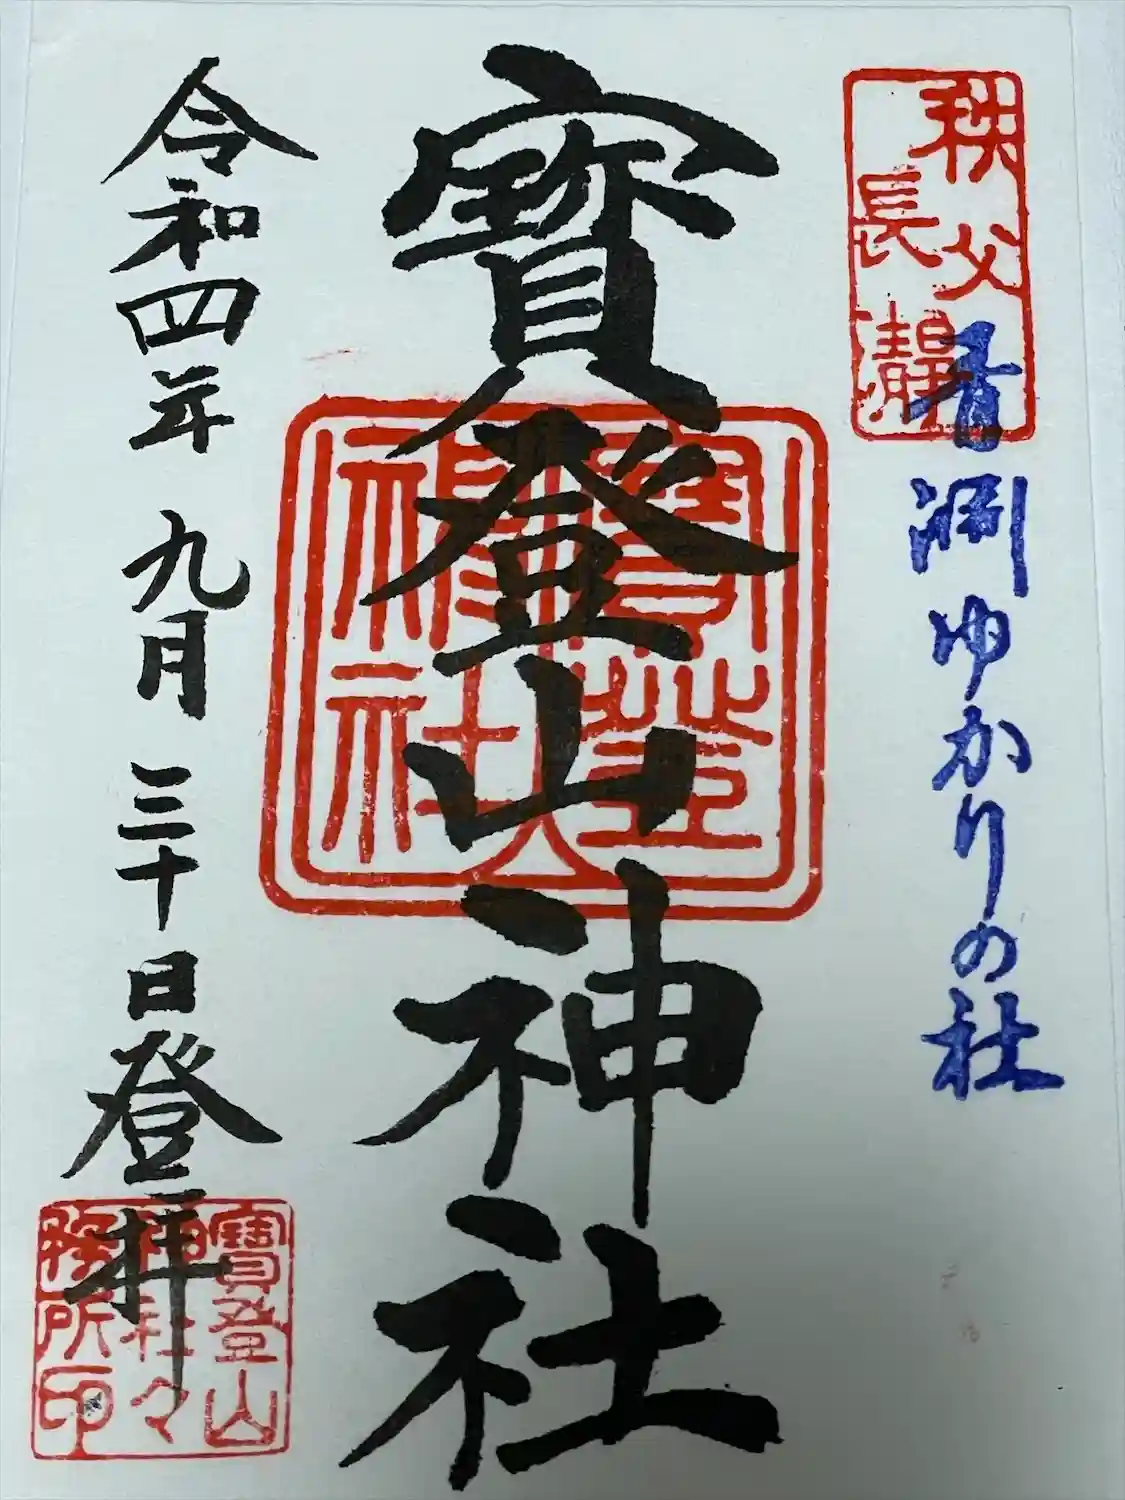 秩父
長瀞
青淵ゆかりの社
寳登山神社
寳登山
神社
令和四年 九月 三十日登拝
寳登山
神社々
務所印